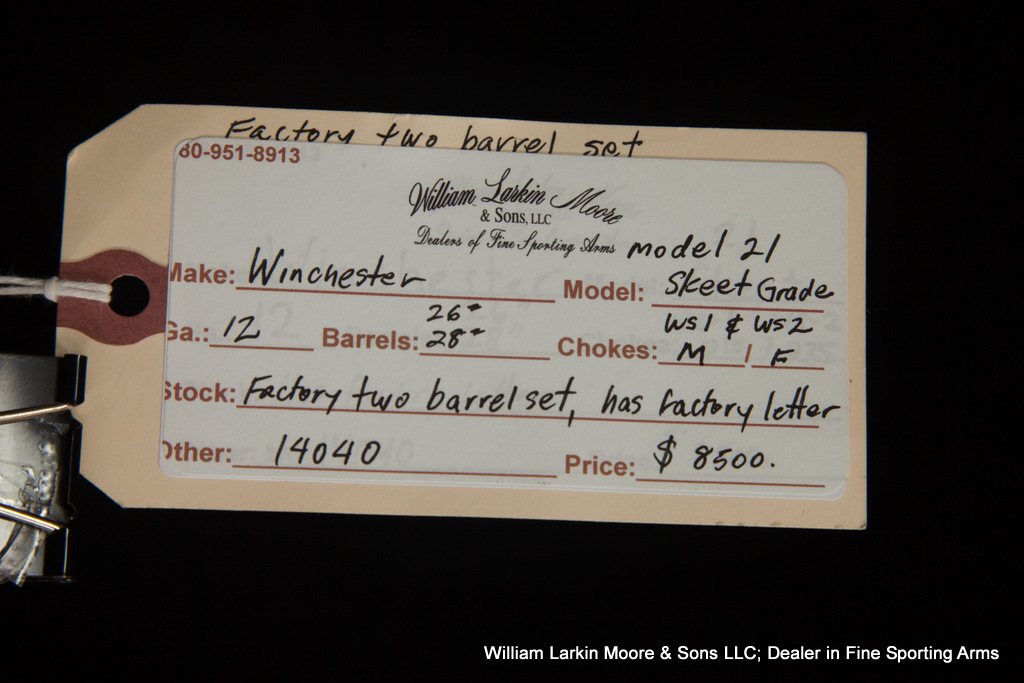 Factory two barrel set
80-951-8913
William Larkin Moore
& Sons, LLC
Dealers of Fine Sporting Arms
model 21
Make: Winchester Model: Skeet Grade
Ga.: 12 Barrels: 26" 28" Chokes: WS1 & WS2 M / F
Stock: Factory two barrel set, has factory letter
Other: 14040 Price: $ 8500.
William Larkin Moore & Sons LLC; Dealer in Fine Sporting Arms